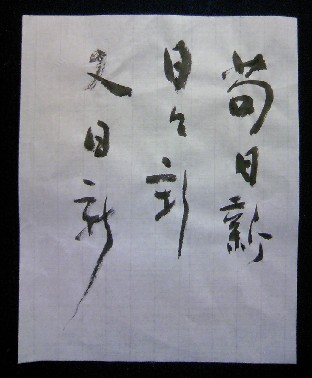 苟日新
日々新
又日新